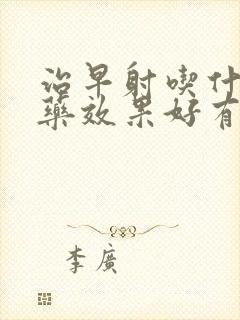 治早射喫什
藥效果好有
李廣